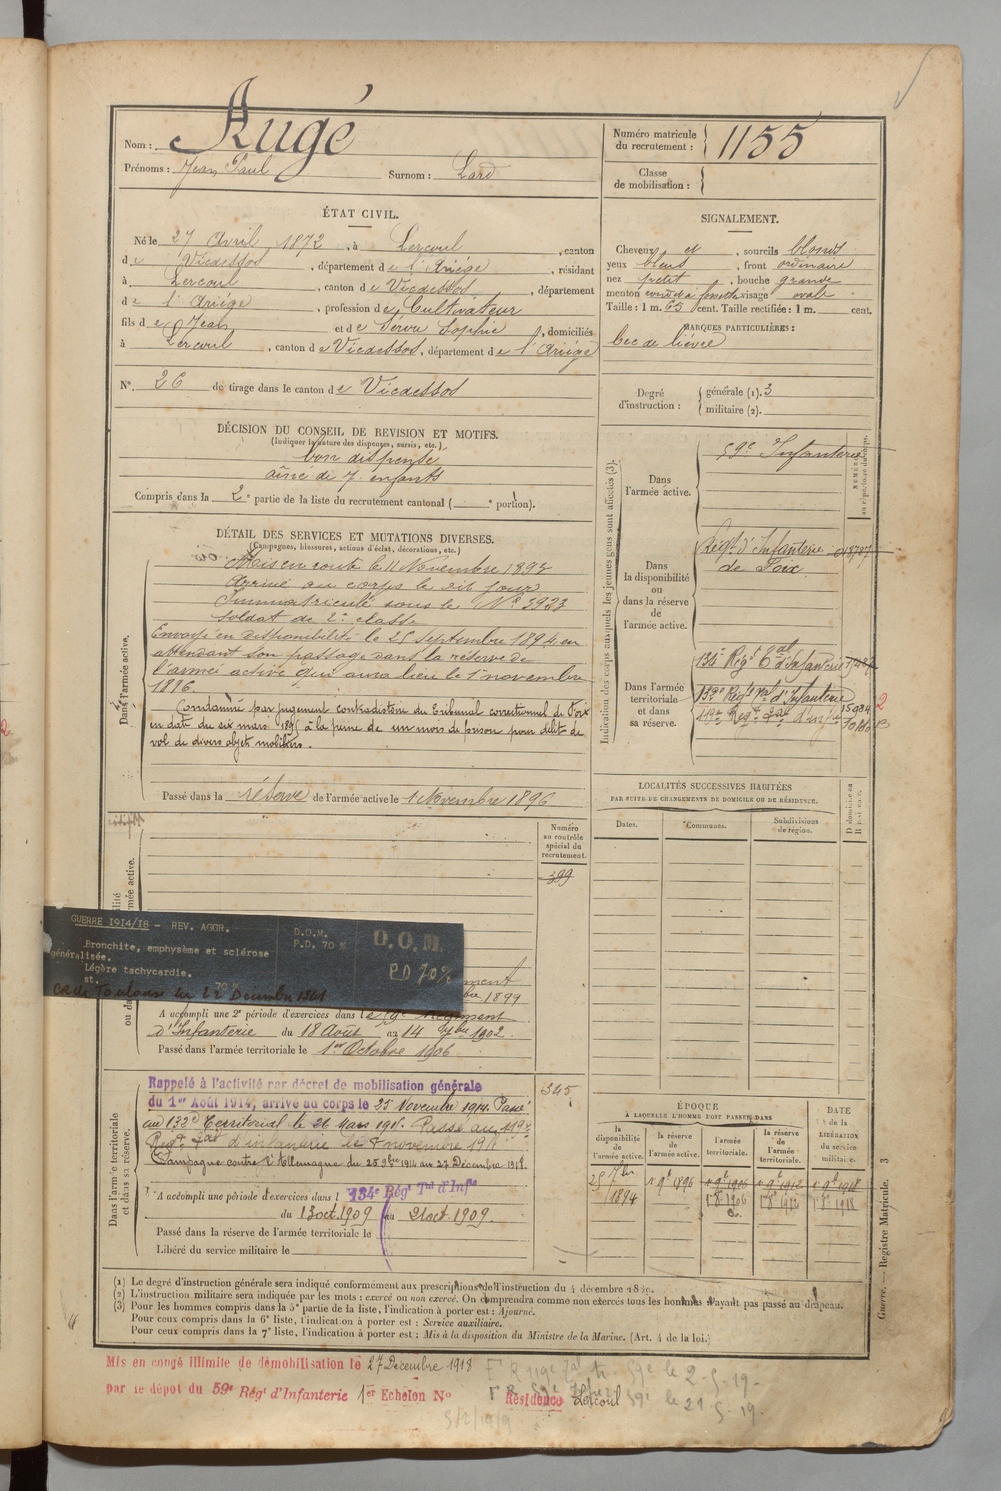 Nom : Augé
Prénoms : Jean Paul Surnom : Lard
Numéro matricule du recrutement : 1155
Classe de mobilisation :
ÉTAT CIVIL.
Né le 27 Avril 1872, à Lercoul, canton
de Vicdessos, département de l'Ariége, résidant
à Lercoul, canton de Vicdessos, département
de l'Ariége, profession de Cultivateur
fils de Jean et de Servu Sophie, domiciliés
à Lercoul, canton de Vicdessos, département de l'Ariége
N° 26 de tirage dans le canton de Vicdessos
SIGNALEMENT.
Cheveux et, sourcils blonds
yeux bleus, front ordinaire
nez petit, bouche grande
menton rond et à fossette visage ovale
Taille : 1 m. 65 cent. Taille rectifiée : 1 m. cent.
MARQUES PARTICULIÈRES :
bec de lièvre
Degré d'instruction : générale (1). 3
militaire (2).
DÉCISION DU CONSEIL DE REVISION ET MOTIFS.
(Indiquer la nature des dispenses, sursis, etc.)
bon dispensé
aîné de 7 enfants
Compris dans la 2e partie de la liste du recrutement cantonal ( e portion).
DÉTAIL DES SERVICES ET MUTATIONS DIVERSES.
(Campagnes, blessures, actions d'éclat, décorations, etc.)
Dans l'armée active.
Mis en route le 11 Novembre 1893
Arrivé au corps le dit jour
Immatriculé sous le N° 3923
Soldat de 2e classe
Envoyé en disponibilité le 25 Septembre 1894 en
attendant son passage dans la réserve de
l'armée active qui aura lieu le 1er novembre
1896.
Condamné par jugement contradictoire du tribunal correctionnel de Foix
en date du six mars 1895 à la peine de un mois de prison pour délit de
vol de divers objets mobiliers.
Passé dans la réserve de l'armée active le 1 Novembre 1896
Numéro au contrôle spécial du recrutement.
399
GUERRE 1914/18 - REV. AGGR.
Bronchite, emphysème et sclérose
généralisée.
Légère tachycardie.
st. 70 %
D.O.M.
P.D. 70 %
D.O.M.
PD 70%
CR de Toulouse du 22 Décembre 1941
1899
A accompli une 2e période d'exercices dans le 59e Régiment
d'Infanterie du 18 Août au 14 7bre 1902.
Passé dans l'armée territoriale le 1er Octobre 1906
Dans l'armée territoriale et dans sa réserve.
Rappelé à l'activité par décret de mobilisation générale
du 1er Août 1914, arrivé au corps le 25 Novembre 1914. Passé
au 132e Territorial le 26 Mars 1915. Passé au 119e
Régt Tal d'infanterie le 8 novembre 1915
Campagne contre l'Allemagne du 25 9bre 1914 au 27 Décembre 1918.
345
A accompli une période d'exercices dans l 134e Régt Tal d'Infie
du 13 oct. 1909 au 21 oct. 1909.
Passé dans la réserve de l'armée territoriale le
Libéré du service militaire le
Indication des corps auxquels les jeunes gens sont affectés (3).
Dans l'armée active.
59e Infanterie
Dans la disponibilité ou dans la réserve de l'armée active.
Régt d'Infanterie
de Foix
Dans l'armée territoriale et dans sa réserve.
134e Régt tal d'Infanterie
132e Régt tal d'Infanterie 15934
119e Regt Tal d'inf
2
LOCALITÉS SUCCESSIVES HABITÉES
PAR SUITE DE CHANGEMENTS DE DOMICILE OU DE RÉSIDENCE.
Dates. Communes. Subdivisions de région. D domicile ou R résidence.
ÉPOQUE
À LAQUELLE L'HOMME DOIT PASSER DANS
DATE de la LIBÉRATION du service militaire.
la disponibilité de l'armée active. la réserve de l'armée active. l'armée territoriale. la réserve de l'armée territoriale.
25 7bre 1894 1er 9b 1896 1er 9b 1906 1er 9b 1912 1er 9b 1918
1er 8b 1906 1er 8b 1912 1er 8b 1918
(1) Le degré d'instruction générale sera indiqué conformément aux prescriptions de l'instruction du 4 décembre 1889.
(2) L'instruction militaire sera indiquée par les mots : exercé ou non exercé. On comprendra comme non exercés tous les hommes n'ayant pas passé au drapeau.
(3) Pour les hommes compris dans la 5e partie de la liste, l'indication à porter est : Ajourné.
Pour ceux compris dans la 6e liste, l'indication à porter est : Service auxiliaire.
Pour ceux compris dans la 7e liste, l'indication à porter est : Mis à la disposition du Ministre de la Marine. (Art. 4 de la loi.)
Guerre. — Registre Matricule. 3
Mis en congé illimité de démobilisation le 27 Décembre 1918
par le dépôt du 59e Régt d'Infanterie 1er Echelon N° Résidence Lercoul
59e le 2-5-19-
59e le 21 5-19-